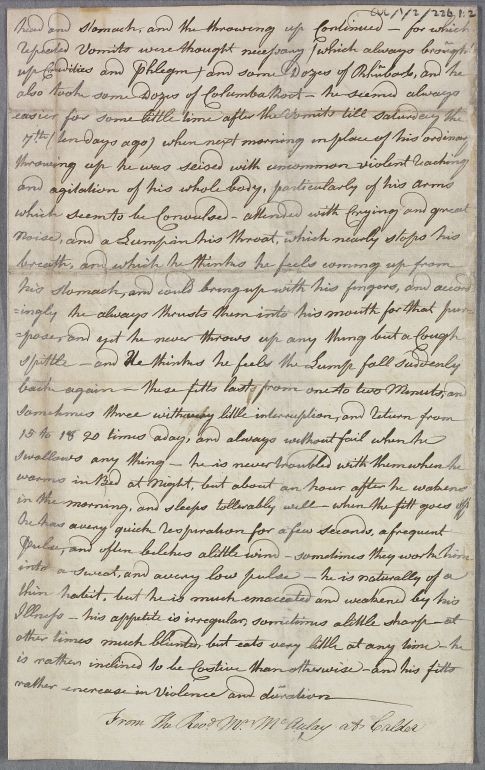 Cul/1/2/226 1:2
head and stomach, and the throwing up Continued – for which
repeated Vomits were thought necessary (which always brought
up Crudities and Phlegm) and some Dozes of Rhubarb, and he
also took some Dozes of Columba Root – he seemed always
easier for some little time after the Vomits till Saturday the
7th (ten days ago) when next morning in place of his ordinary
throwing up he was seised with uncommon violent reaching
and agitation of his whole body, particularly of his arms
which seem to be Convulsed – attended with Crying and great
noise, and a Lump in his throat, which nearly stops his
breath, and which he thinks he feels coming up from
his stomach, and could bring up with his fingers, and accor=
=ingly he always thrusts them into his mouth for that pur=
=pose, and yet he never throws up any thing but a Cough
Spittle – and he thinks he feels the Lump fall suddenly
back again – these fitts last from one to two Minuts, and
sometimes three with very little interruption, and return from
15 to 18 20 times a day, and always without fail when he
swallows any thing – he is never troubled with them when he
warms in Bed at night, but about an hour after he wakens
in the morning, and sleeps tollerably well – when the fitt goes off
he has a very quick respiration for a few seconds, a frequent
pulse, and often belches a little wind – sometimes they work him
into a sweat, and a very low pulse – he is naturally of a
thin habit, but he is much emaceated and weakened by his
Illness – his appetite is irregular, sometimes a little sharp – at
other times much blunted, but eats very little at any time – he
is rather inclined to be Costive than otherwise – and his fitts
rather encrease in Violence and duration
From the Revd. Mr. McAulay at Calder